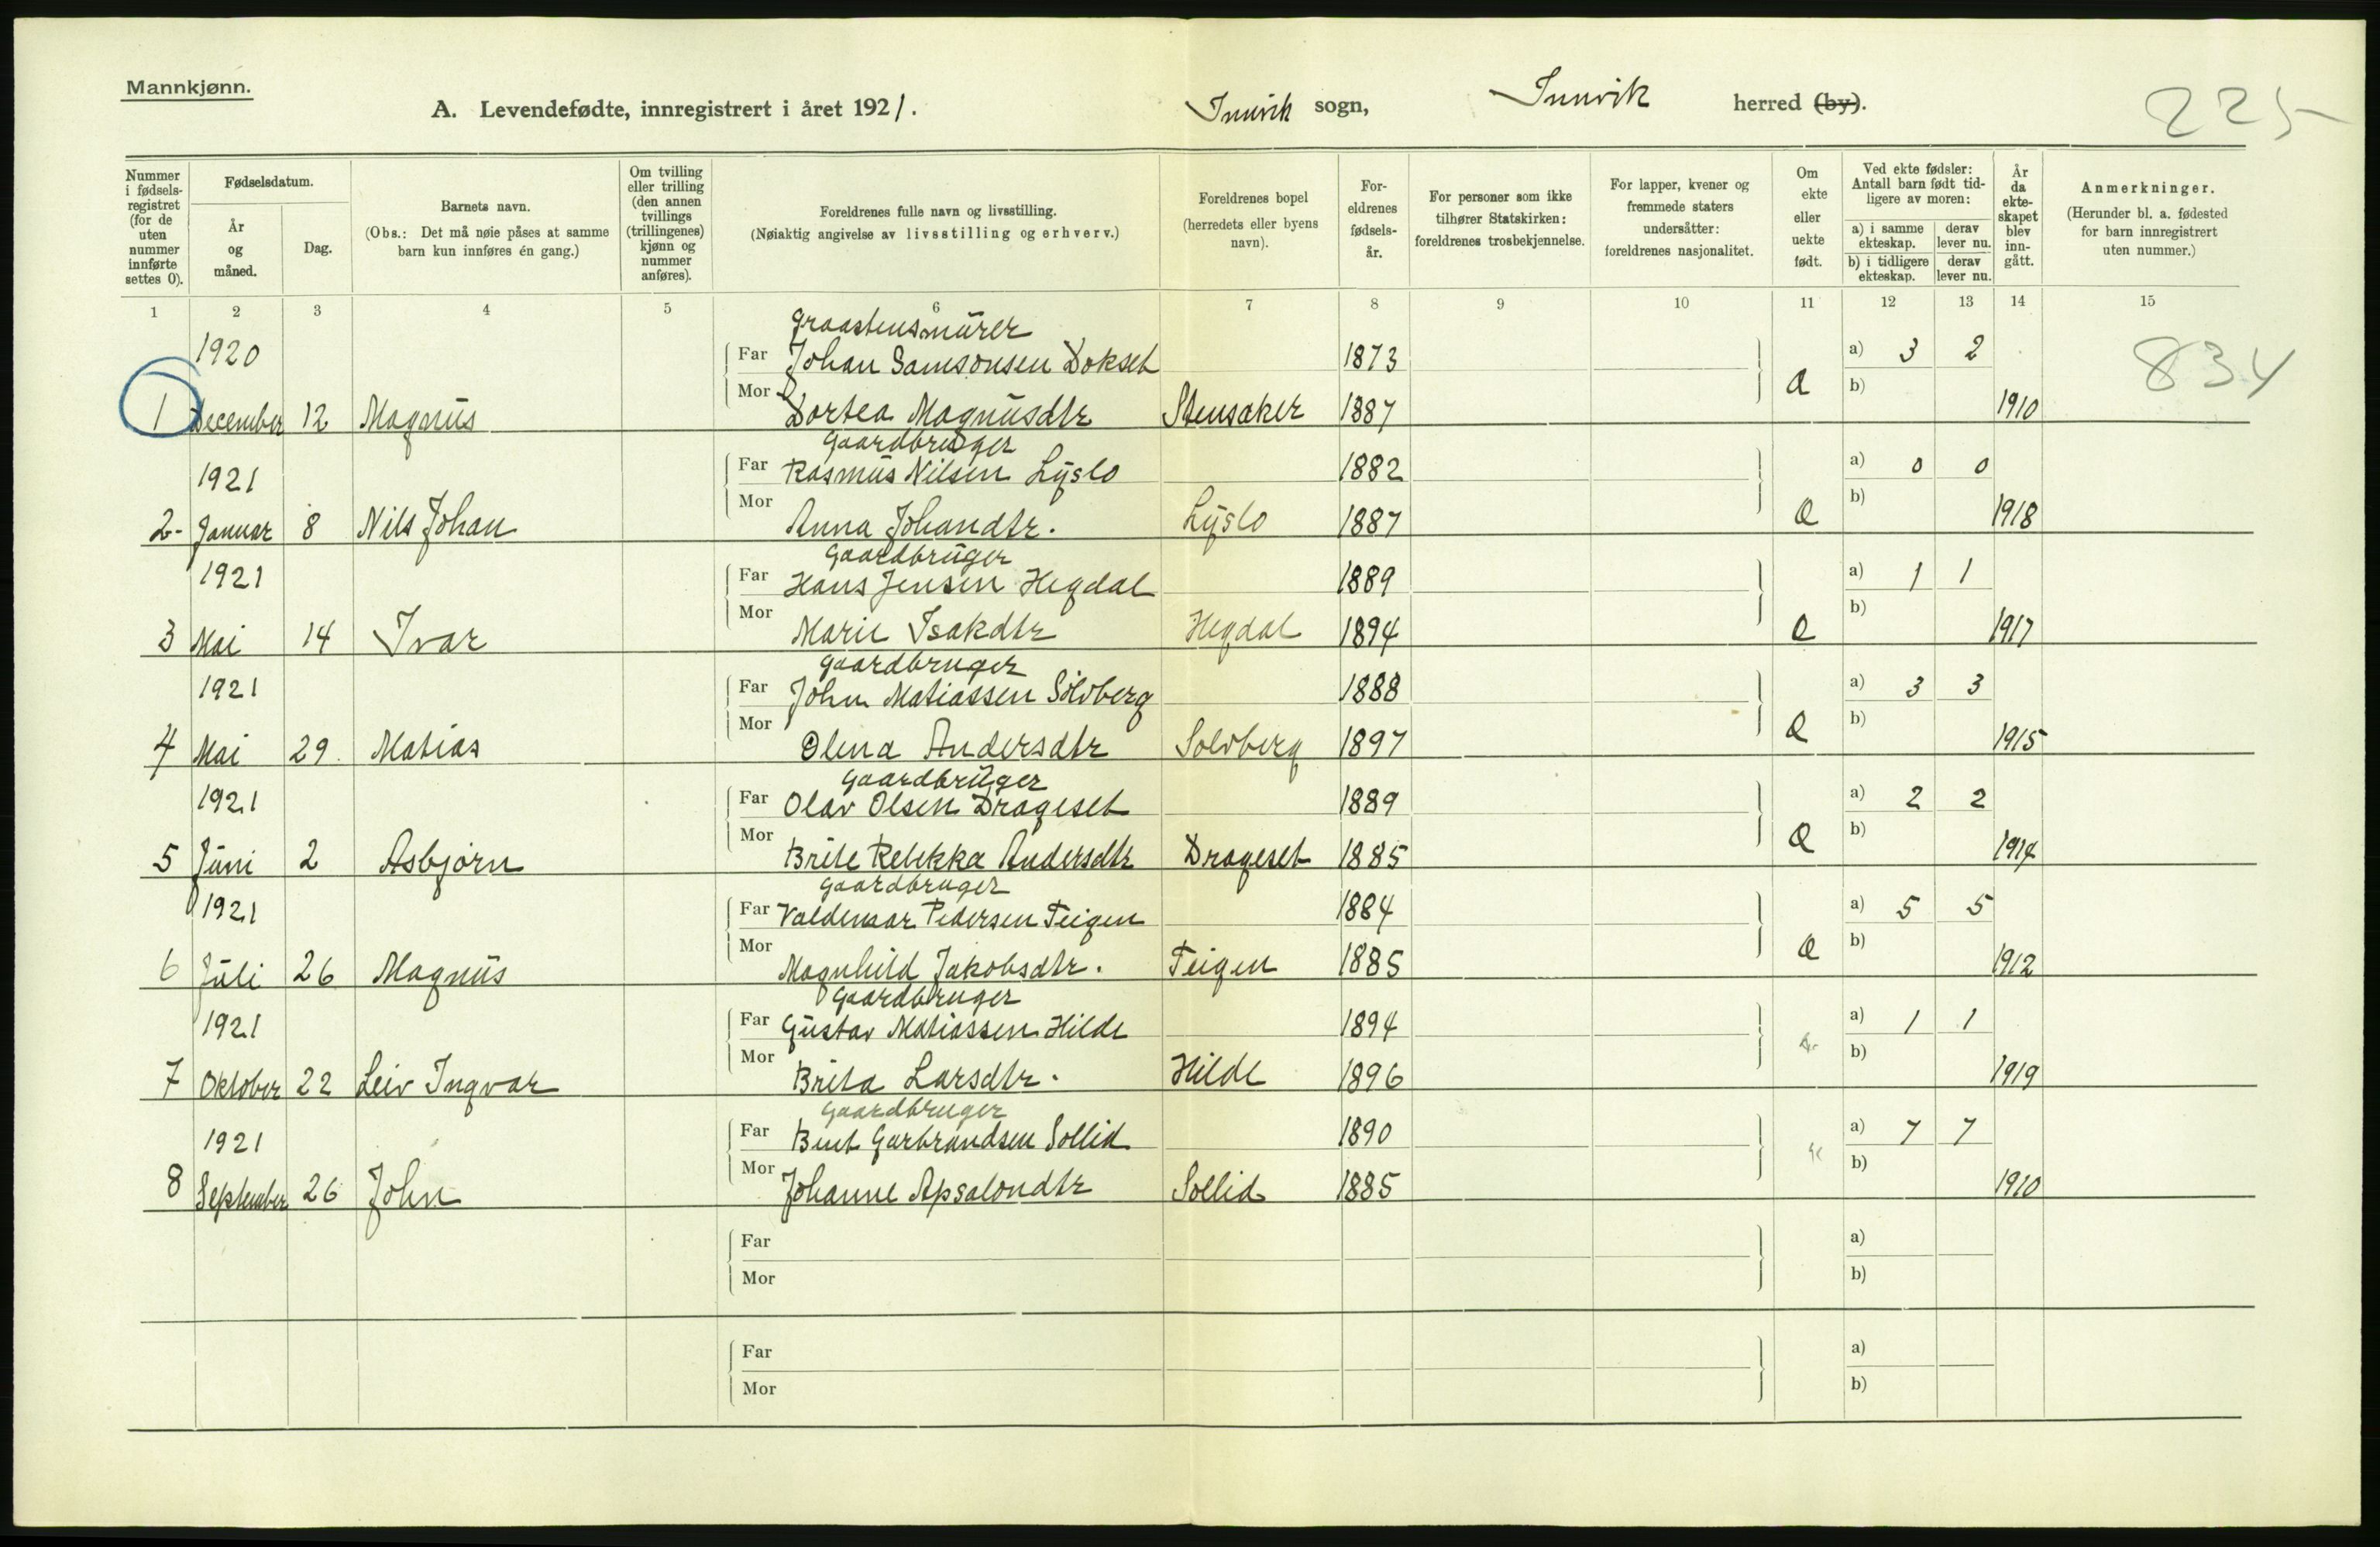 Mannkjønn.
A. Levendefødte, innregistrert i året 1921. Innvik sogn, Innvik herred (by). 225
Nummer i fødsels-registret (for de uten nummer innførte settes 0). Fødselsdatum. År og måned. Dag. Barnets navn. (Obs.: Det må nøie påses at samme barn kun innføres én gang.) Om tvilling eller trilling (den annen tvillings (trillingenes) kjønn og nummer anføres). Foreldrenes fulle navn og livsstilling. (Nøiaktig angivelse av livsstilling og erhverv.) Foreldrenes bopel (herredets eller byens navn). For-eldrenes fødsels-år. For personer som ikke tilhører Statskirken: foreldrenes trosbekjennelse. For lapper, kvener og fremmede staters undersåtter: foreldrenes nasjonalitet. Om ekte eller uekte født. Ved ekte fødsler: Antall barn født tid-ligere av moren: a) i samme ekteskap. derav lever nu. b) i tidligere ekteskap. derav lever nu. År da ekte-skapet blev inn-gått. Anmerkninger. (Herunder bl. a. fødested for barn innregistrert uten nummer.)
1 2 3 4 5 6 7 8 9 10 11 12 13 14 15
Graastensmurer
1920 Far Johan Samsonsen Dokset 1873 a) 3 2 834
1 December 12 Magnus Mor Dortea Magnusdtr Stensaker 1887 e b) 1910
Gaardbruger
1921 Far Rasmus Nilsen Lyslo 1882 a) 0 0
2 Januar 8 Nils Johan Mor Anna Johandtr. Lyslo 1887 e b) 1918
Gaardbruger
1921 Far Hans Jensen Hegdal 1889 a) 1 1
3 Mai 14 Ivar Mor Marie Isakdtr Hegdal 1894 e b) 1917
Gaardbruger
1921 Far John Matiassen Solvberg 1888 a) 3 3
4 Mai 29. Matias Mor Olena Andersdtr Solvberg 1897 e b) 1915
Gaardbruger
1921 Far Olav Olsen Drageset 1889 a) 2 2
5 Juni 2 Asbjørn Mor Brite Rebekka Andersdtr Drageset 1885 e b) 1914
Gaardbruger
1921 Far Valdemar Pedersen Teigen 1884 a) 5 5
6 Juli 26 Magnus Mor Magnhild Jakobsdtr. Teigen 1885 e b) 1912
Gaardbruger
1921 Far Gustav Matiassen Hilde 1894 a) 1 1
7 Oktober 22 Leiv Ingvar Mor Brita Larsdtr. Hilde 1896 b) 1919
Gaardbruger
1921 Far Bent Garbrandsen Sollid 1890 a) 7 7
8 September 26 John Mor Johanne Apsalondtr Sollid 1885 b) 1910
Far a)
Mor b)
Far a)
Mor b)